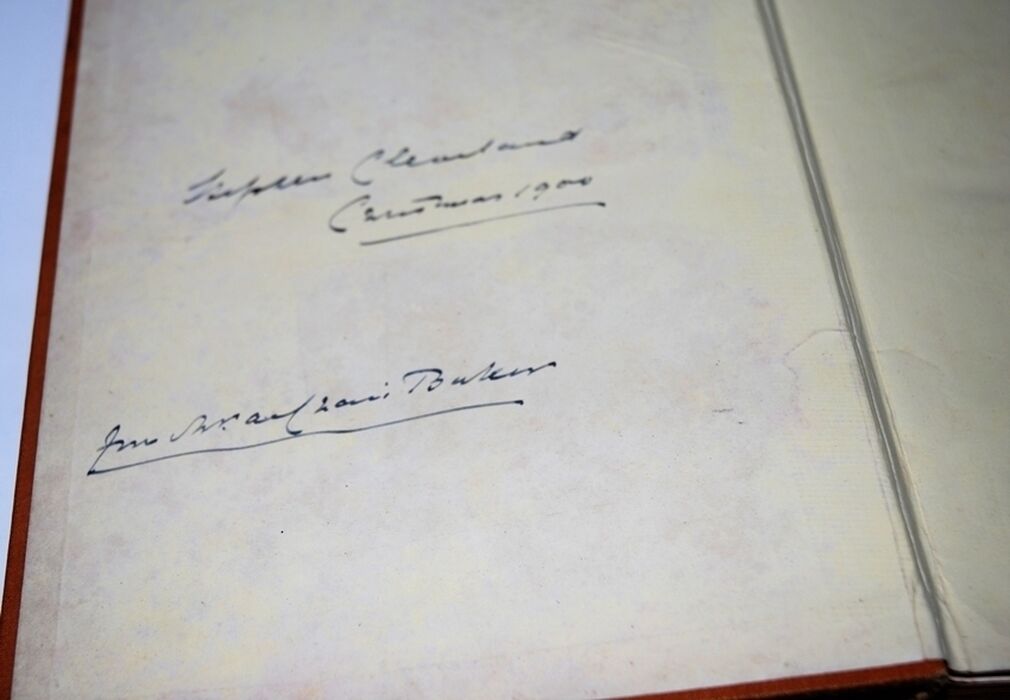 Stephen Cleveland
Christmas 1900
from Mr. and Baker